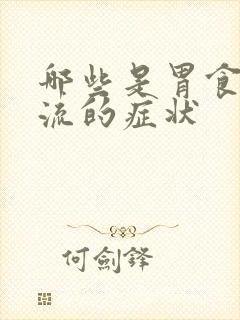 哪些是胃食
流的症状
何劍鋒